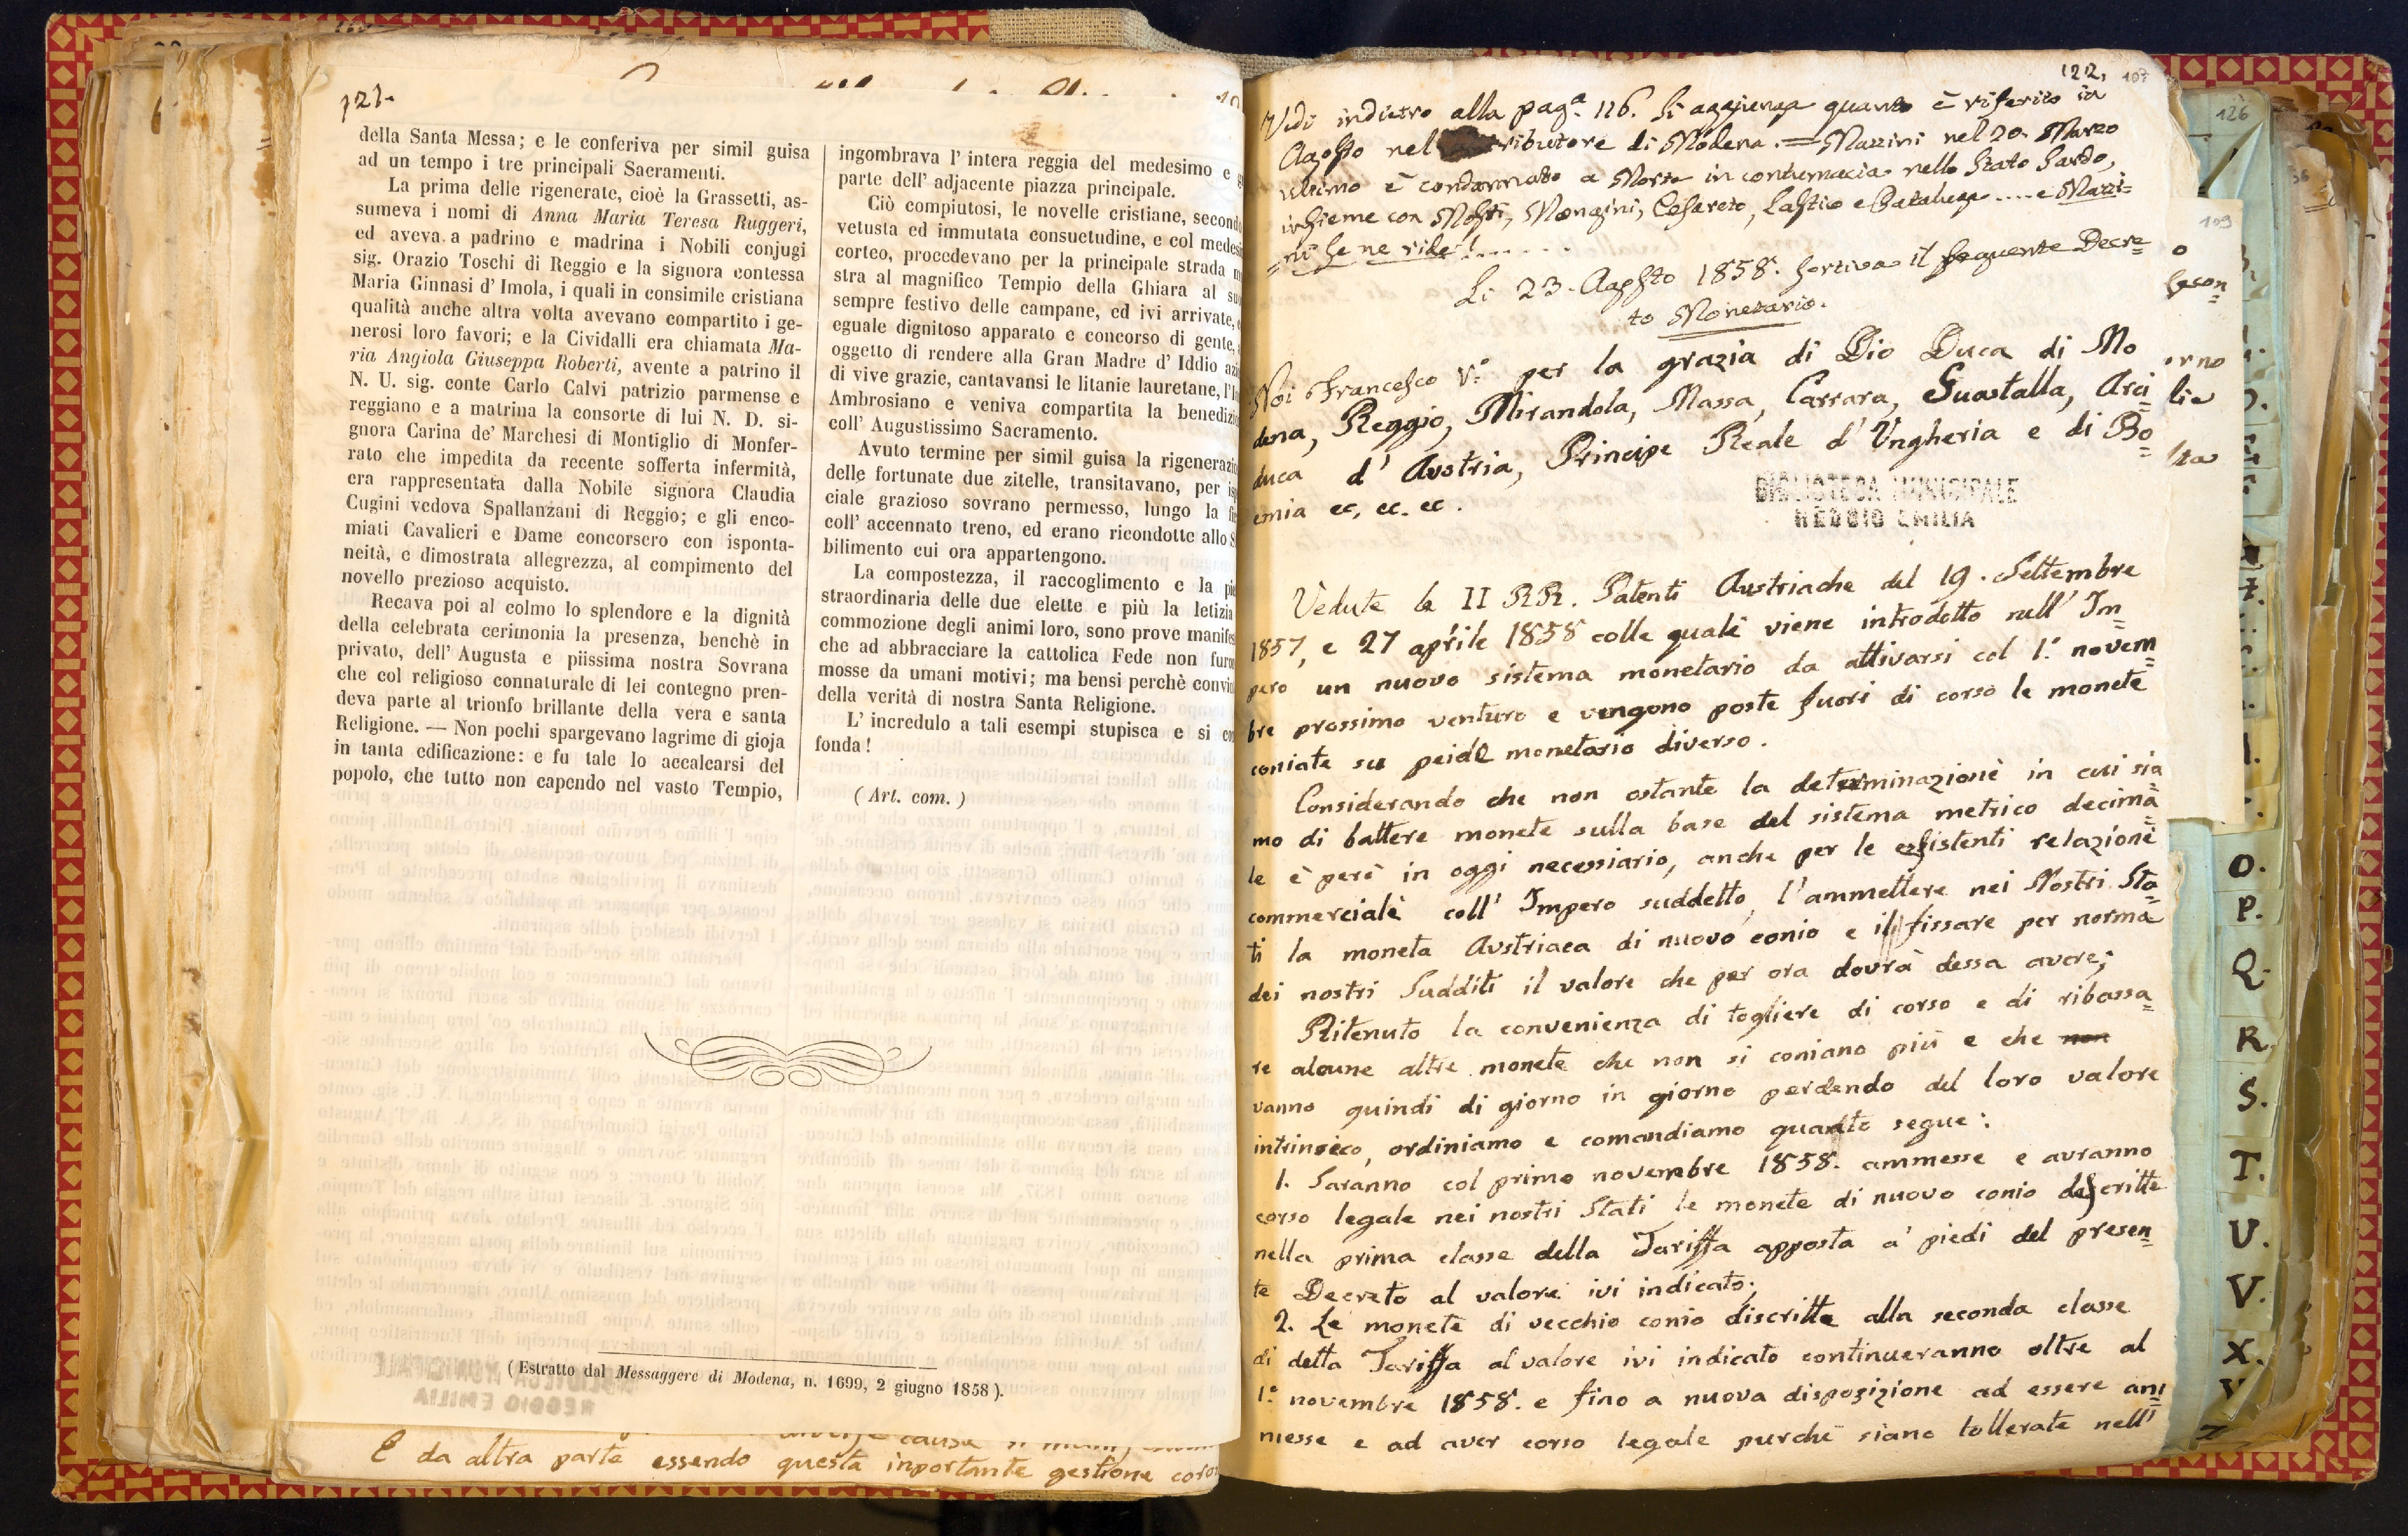 121.
della Santa Messa; e le conferiva per simil guisa
ad un tempo i tre principali Sacramenti.
La prima delle rigenerate, cioè la Grassetti, as-
sumeva i nomi di Anna Maria Teresa Ruggeri,
ed aveva a padrino e madrina i Nobili conjugi
sig. Orazio Toschi di Reggio e la signora contessa
Maria Ginnasi d' Imola, i quali in consimile cristiana
qualità anche altra volta avevano compartito i ge-
nerosi loro favori; e la Cividalli era chiamata Ma-
ria Angiola Giuseppa Roberti, avente a patrino il
N. U. sig. conte Carlo Calvi patrizio parmense e
reggiano e a matrina la consorte di lui N. D. si-
gnora Carina de' Marchesi di Montiglio di Monfer-
rato che impedita da recente sofferta infermità,
era rappresentata dalla Nobile signora Claudia
Cugini vedova Spallanzani di Reggio; e gli enco-
miati Cavalieri e Dame concorsero con isponta-
neità, e dimostrata allegrezza, al compimento del
novello prezioso acquisto.
Recava poi al colmo lo splendore e la dignità
della celebrata cerimonia la presenza, benchè in
privato, dell' Augusta e piissima nostra Sovrana
che col religioso connaturale di lei contegno pren-
deva parte al trionfo brillante della vera e santa
Religione. — Non pochi spargevano lagrime di gioja
in tanta edificazione: e fu tale lo accalcarsi del
popolo, che tutto non capendo nel vasto Tempio,
ingombrava l' intera reggia del medesimo e
parte dell' adjacente piazza principale.
Ciò compiutosi, le novelle cristiane,
vetusta ed immutata consuetudine, e col
corteo, procedevano per la principale strada
stra al magnifico Tempio della Ghiara al
sempre festivo delle campane, ed ivi arrivate,
eguale dignitoso apparato e concorso di gente,
oggetto di rendere alla Gran Madre d' Iddio
di vive grazie, cantavansi le litanie lauretane,
Ambrosiano e veniva compartita la
coll' Augustissimo Sacramento.
Avuto termine per simil guisa la
delle fortunate due zitelle, transitavano, per
ciale grazioso sovrano permesso, lungo la
coll' accennato treno, ed erano ricondotte allo
bilimento cui ora appartengono.
La compostezza, il raccoglimento e la
straordinaria delle due elette e più la letizia
commozione degli animi loro, sono prove
che ad abbracciare la cattolica Fede non
mosse da umani motivi; ma bensì perchè
della verità di nostra Santa Religione.
L' incredulo a tali esempi stupisca e si
fonda!
(Art. com.)
(Estratto dal Messaggere di Modena, n. 1699, 2 giugno 1858).
E da altra parte essendo questa inportante gestione
122. 107
Vedi indietro alla pag.a 116. Si aggiunga quanto è riferito in
Agosto nel ributore di Modena. = Mazzini nel 20. Marzo
ultimo è condannato a Morte in contumacia nello Stato Sardo,
insieme con Mosti, Mongini, Cesareto, Lastico e .... e Mazzi=
=ni se ne ride!......
Li 23. Agosto 1858. sortiva il seguente Decre=
to Monetario.
Noi Francesco V.º per la grazia di Dio Duca di Mo
dena, Reggio, Mirandola, Massa, Carrara, Guastalla, Arci=
duca d' Austria, Principe Reale d' Ungheria e di Bo=
emia ec, ec. ec.
BIBLIOTECA MUNICIPALE
REGGIO EMILIA
Vedute le II RR. Patenti Austriache del 19. Settembre
1857, e 27 aprile 1858 colle quali viene introdotto nell' Im=
pero un nuovo sistema monetario da attivarsi col 1.º novem=
bre prossimo venturo e vengono poste fuori di corso le monete
coniate su peide monetario diverso.
Considerando che non ostante la determinazione in cui sia=
mo di battere monete sulla base del sistema metrico decima=
le è però in oggi necessiario, anche per le esistenti relazioni
commerciali coll' Impero suddetto, l' ammettere nei Nostri Sta=
ti la moneta Austriaca di nuovo conio e il fissare per norma
dei nostri Sudditi il valore che per ora dovrà dessa avere;
Ritenuto la convenienza di togliere di corso e di ribassa=
re alcune altre monete che non si coniano più e che non
vanno quindi di giorno in giorno perdendo del loro valore
intrinseco, ordiniamo e comandiamo quanto segue:
1. Saranno col primo novembre 1858. ammesse e avranno
corso legale nei nostri Stati le monete di nuovo conio descritte
nella prima classe della Tariffa apposta a' piedi del presen=
te Decreto al valore ivi indicato;
2. Le monete di vecchio conio discritte alla seconda classe
di detta Tariffa al valore ivi indicato continueranno oltre al
1.º novembre 1858. e fino a nuova disposizione ad essere am=
messe e ad aver corso legale purchè siano tollerate nell'
109
126
O.
P.
Q.
R.
S.
T.
U.
V.
X.